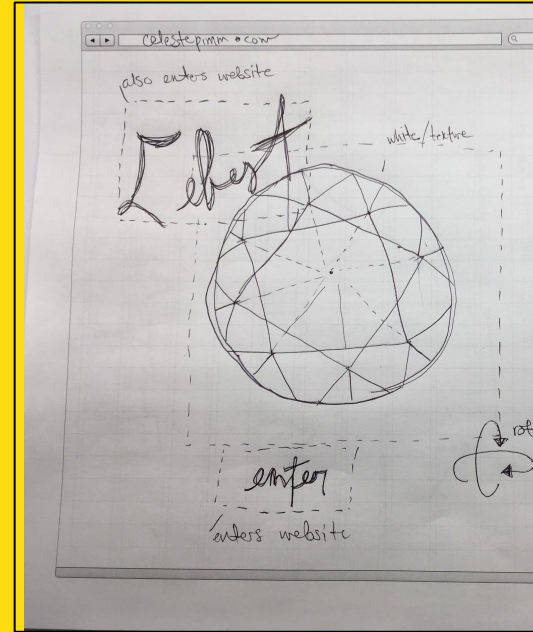 celestepimm.com
also enters website
Celest
white/texture
rot
enter
enters website